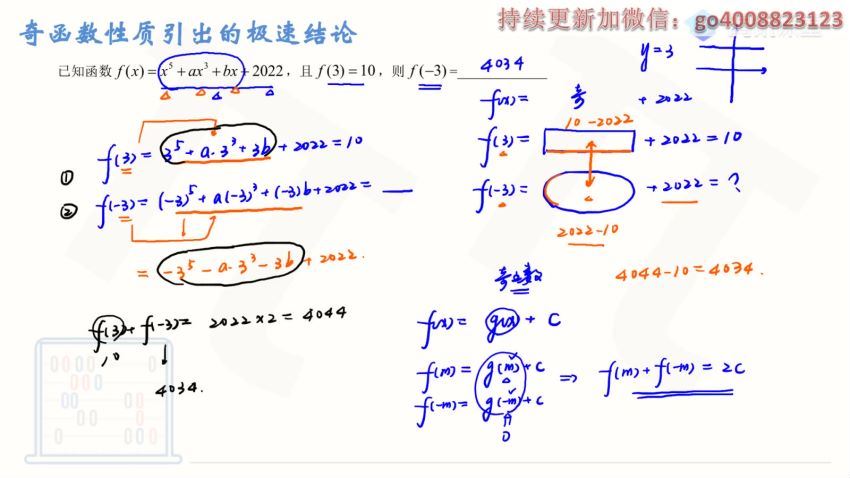 持续更新加微信：go4008823123
奇函数性质引出的极速结论
已知函数 f(x)=x⁵+ax³+bx+2022，且 f(3)=10，则 f(−3)= 4034
y=3
f(x)= 奇 + 2022
10-2022
① f(3)= 3⁵+a·3³+3b+2022=10
f(3)= +2022=10
② f(-3)= (-3)⁵+a(-3)³+(-3)b+2022=
f(-3)= +2022=?
2022-10
= -3⁵-a·3³-3b+2022.
4044-10=4034.
奇函数
f(3)+f(-3)= 2022×2=4044
10
4034.
f(x)= g(x)+C
f(m)= g(m)+C
f(-m)= g(-m)+C
⇒ f(m)+f(-m)=2C
0